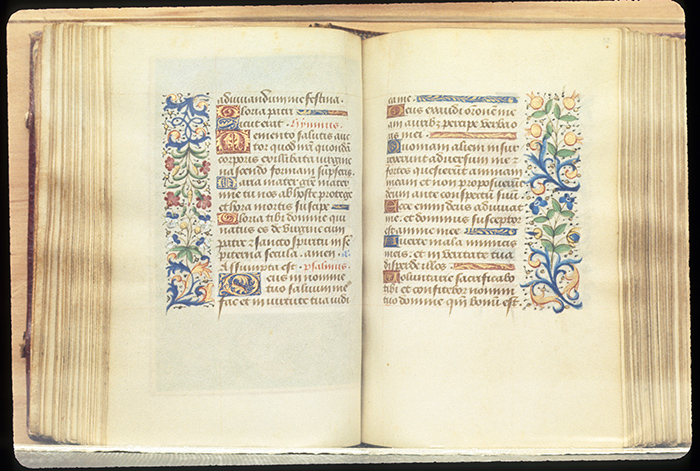 adiuuandum me festina.
Gloria patri
Sicut erat. Hymnus.
Memento salutis auc
tor quod nrĩ quondã
corporis ex illibata uirgine
nascendo formam sũpseris
Maria mater grãe mater
mie tu nos ab hoste protege
et hora mortis suscipe
Gloria tibi domine qui
natus es de uirgine cum
patre et sancto spiritu in se
piterna secula. amen. añ
Assumpta est. psalmus.
Deus in nomine
tuo saluum me
fac et in uirtute tua iudi
ca me.
Deus exaudi orõnẽ me
am auribz percipe uerba o
ris mei.
Quoniam alieni insur
rexerunt aduersum me et
fortes quesierunt animam
meam et non proposuerũt
deum ante conspectũ suũ
Ecce enim deus adiuuat
me. et dominus susceptor
est anime mee.
Auerte mala inimicis
meis. et in ueritate tua
disperde illos.
Uoluntarie sacrificabo
tibi et confitebor nomini
tuo domine qm̃ bonũ est.